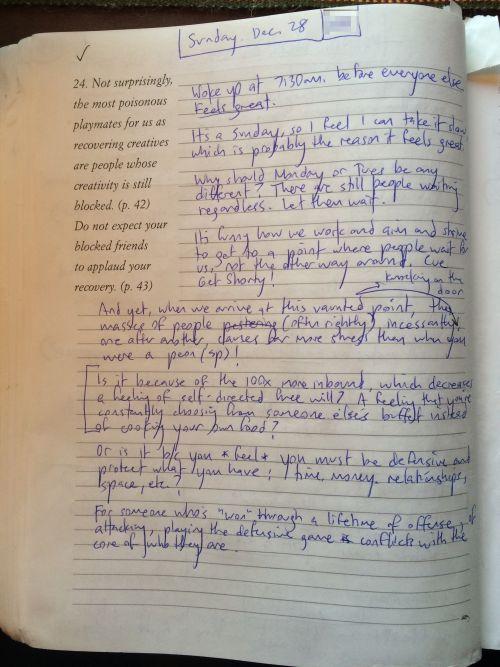 Sunday. Dec. 28
✓
24. Not surprisingly,
the most poisonous
playmates for us as
recovering creatives
are people whose
creativity is still
blocked. (p. 42)
Do not expect your
blocked friends
to applaud your
recovery. (p. 43)
Woke up at 7:30am. before everyone else.
Feels great.
It's a Sunday, so I feel I can take it slow,
which is probably the reason it feels great.
Why should Monday or Tues be any
different? There are still people waiting
regardless. Let them wait.
It's funny how we work and aim and strive
to get to a point where people wait for
us, not the other way around. Cue
Get Shorty!
knocking on the
door
And yet, when we arrive at this vaunted point, the
masses of people pestering (often rightly) incessantly,
one after another, causes far more stress than when you
were a peon (sp)!
Is it because of the 100x more inbound, which decreases
a feeling of self-directed free will? A feeling that you're
constantly choosing from someone else's buffet instead
of cooking your own food?
Or is it b/c you *feel* you must be defensive and
protect what you have: time, money, relationships,
space, etc.?
For someone who's "won" through a lifetime of offense, of
attacking, playing the defensive game conflicts with the
core of who they are.